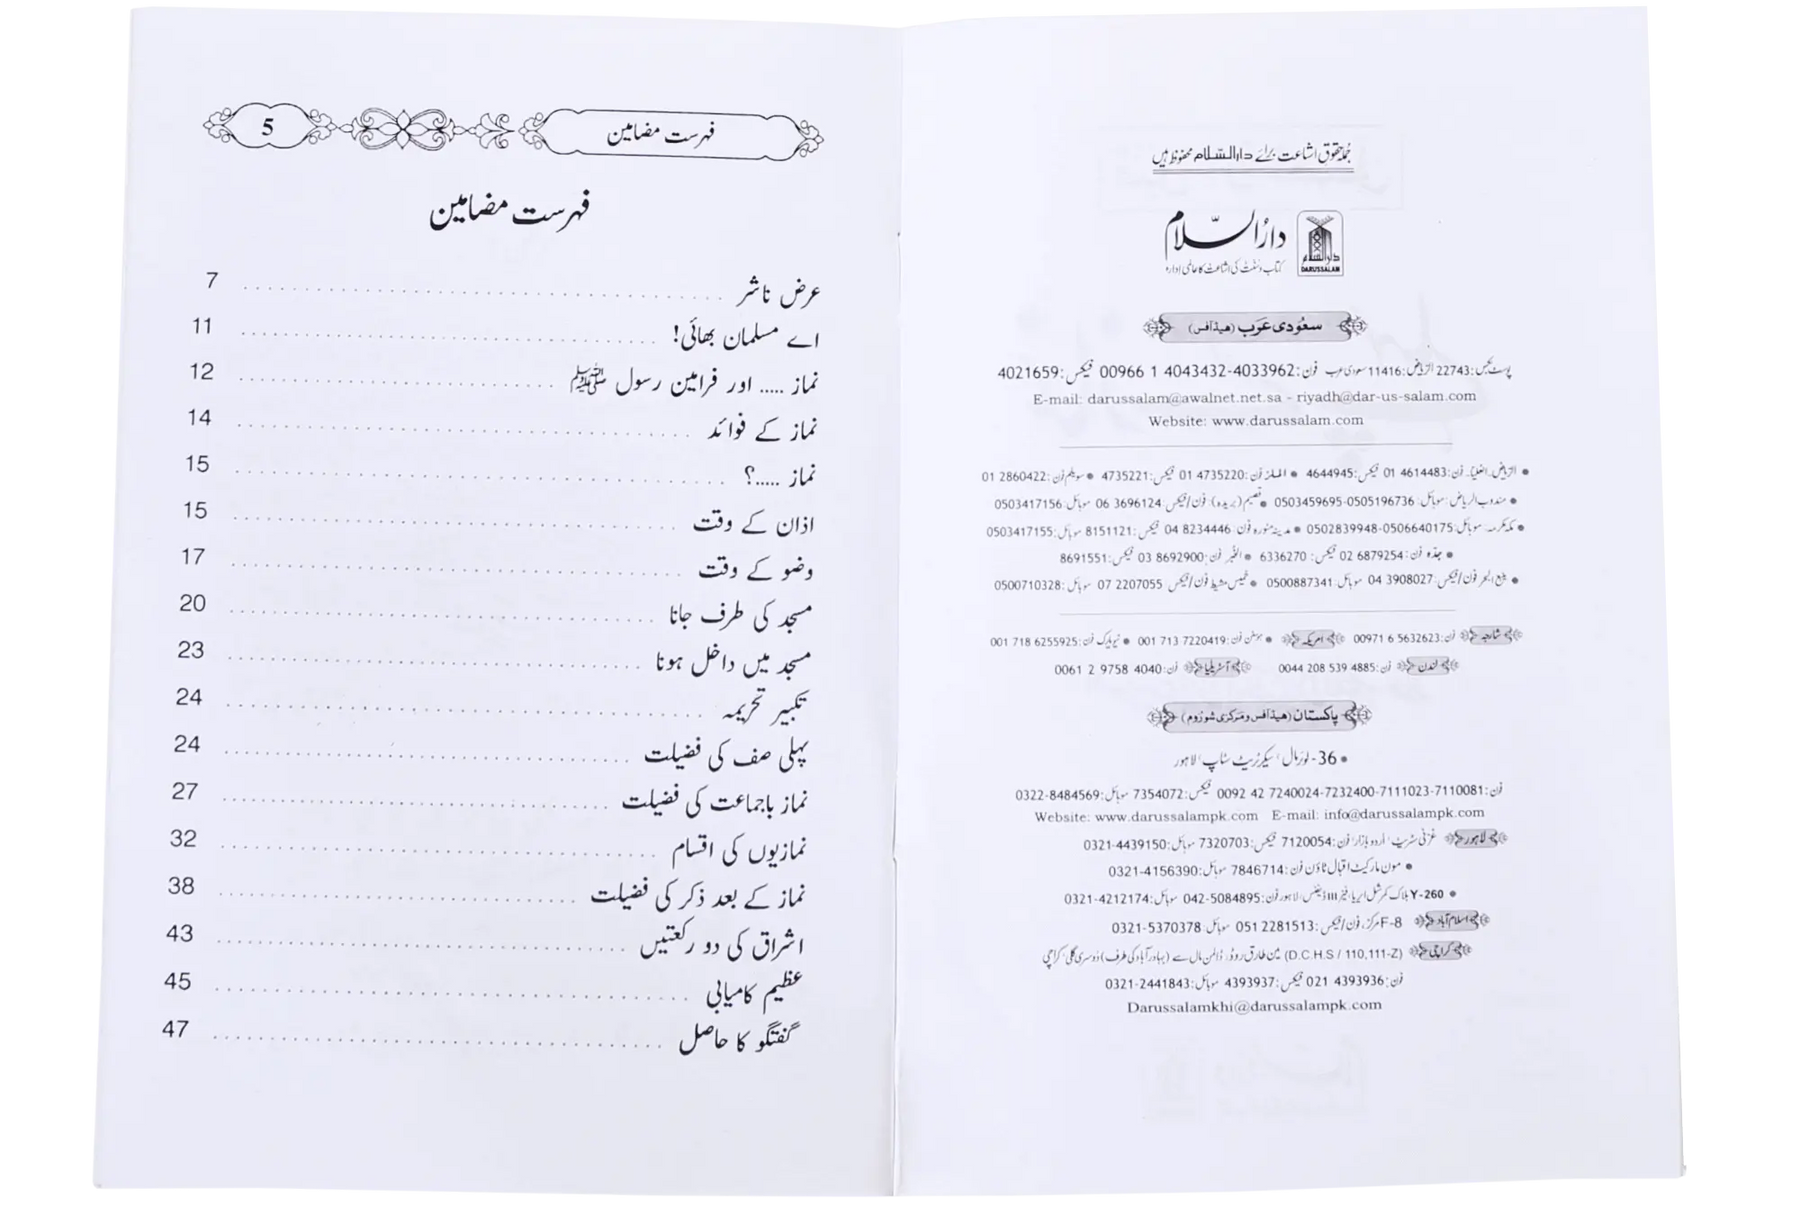 جملہ حقوق اشاعت برائے دارالسلام محفوظ ہیں
دارالسلام
DARUSSALAM
دارُالسّلام
کتاب و سنت کی اشاعت کا عالمی ادارہ
سعُودی عَرَب (ھیڈ آفس)
پوسٹ بکس:22743 الریاض:11416 سعودی عرب فون:00966 1 4043432-4033962 فیکس:4021659
E-mail: darussalam@awalnet.net.sa - riyadh@dar-us-salam.com
Website: www.darussalam.com
• الریاض۔ العلیا۔ فون:01 4614483 فیکس:4644945 • الملز فون:01 4735220 فیکس:4735221 • سویلم فون:01 2860422
• مندوب الریاض: موبائل:0503459695-0505196736 • قصیم (بریدہ): فون/فیکس:06 3696124 موبائل:0503417156
• مکہ مکرمہ: موبائل:0502839948-0506640175 • مدینہ منورہ فون:04 8234446 فیکس:8151121 موبائل:0503417155
• جدہ فون:02 6879254 فیکس:6336270 • الخبر فون:03 8692900 فیکس:8691551
• ینبع البحر فون/فیکس:04 3908027 موبائل:0500887341 • خمیس مشیط فون/فیکس:07 2207055 موبائل:0500710328
شارجہ فون:00971 6 5632623 امریکہ • ہوسٹن فون:001 713 7220419 • نیویارک فون:001 718 6255925
لندن فون:0044 208 539 4885 آسٹریلیا فون:0061 2 9758 4040
پاکستان (ھیڈ آفس و مَرکزی شو رُوم)
• 36- لوئر مال، سیکرٹریٹ سٹاپ، لاہور
فون:0092 42 7240024-7232400-7111023-7110081 فیکس:7354072 موبائل:0322-8484569
Website: www.darussalampk.com E-mail: info@darussalampk.com
لاہور غزنی سٹریٹ، اُردو بازار، فون:7120054 فیکس:7320703 موبائل:0321-4439150
• مون مارکیٹ اقبال ٹاؤن فون:7846714 موبائل:0321-4156390
• Y-260 بلاک کمرشل ایریا، فیز III ڈیفنس، لاہور فون:042-5084895 موبائل:0321-4212174
اسلام آباد F-8 مرکز، فون/فیکس:051 2281513 موبائل:0321-5370378
کراچی (D.C.H.S / 110,111-Z) مین طارق روڈ، ڈالمن مال سے (بہادر آباد کی طرف) دوسری گلی، کراچی
فون:021 4393936 فیکس:4393937 موبائل:0321-2441843
Darussalamkhi@darussalampk.com
فہرست مضامین 5
فہرست مضامین
عرض ناشر 7
اے مسلمان بھائی! 11
نماز ..... اور فرامین رسول ﷺ 12
نماز کے فوائد 14
نماز .....؟ 15
اذان کے وقت 15
وضو کے وقت 17
مسجد کی طرف جانا 20
مسجد میں داخل ہونا 23
تکبیر تحریمہ 24
پہلی صف کی فضیلت 24
نماز باجماعت کی فضیلت 27
نمازیوں کی اقسام 32
نماز کے بعد ذکر کی فضیلت 38
اشراق کی دو رکعتیں 43
عظیم کامیابی 45
گفتگو کا حاصل 47